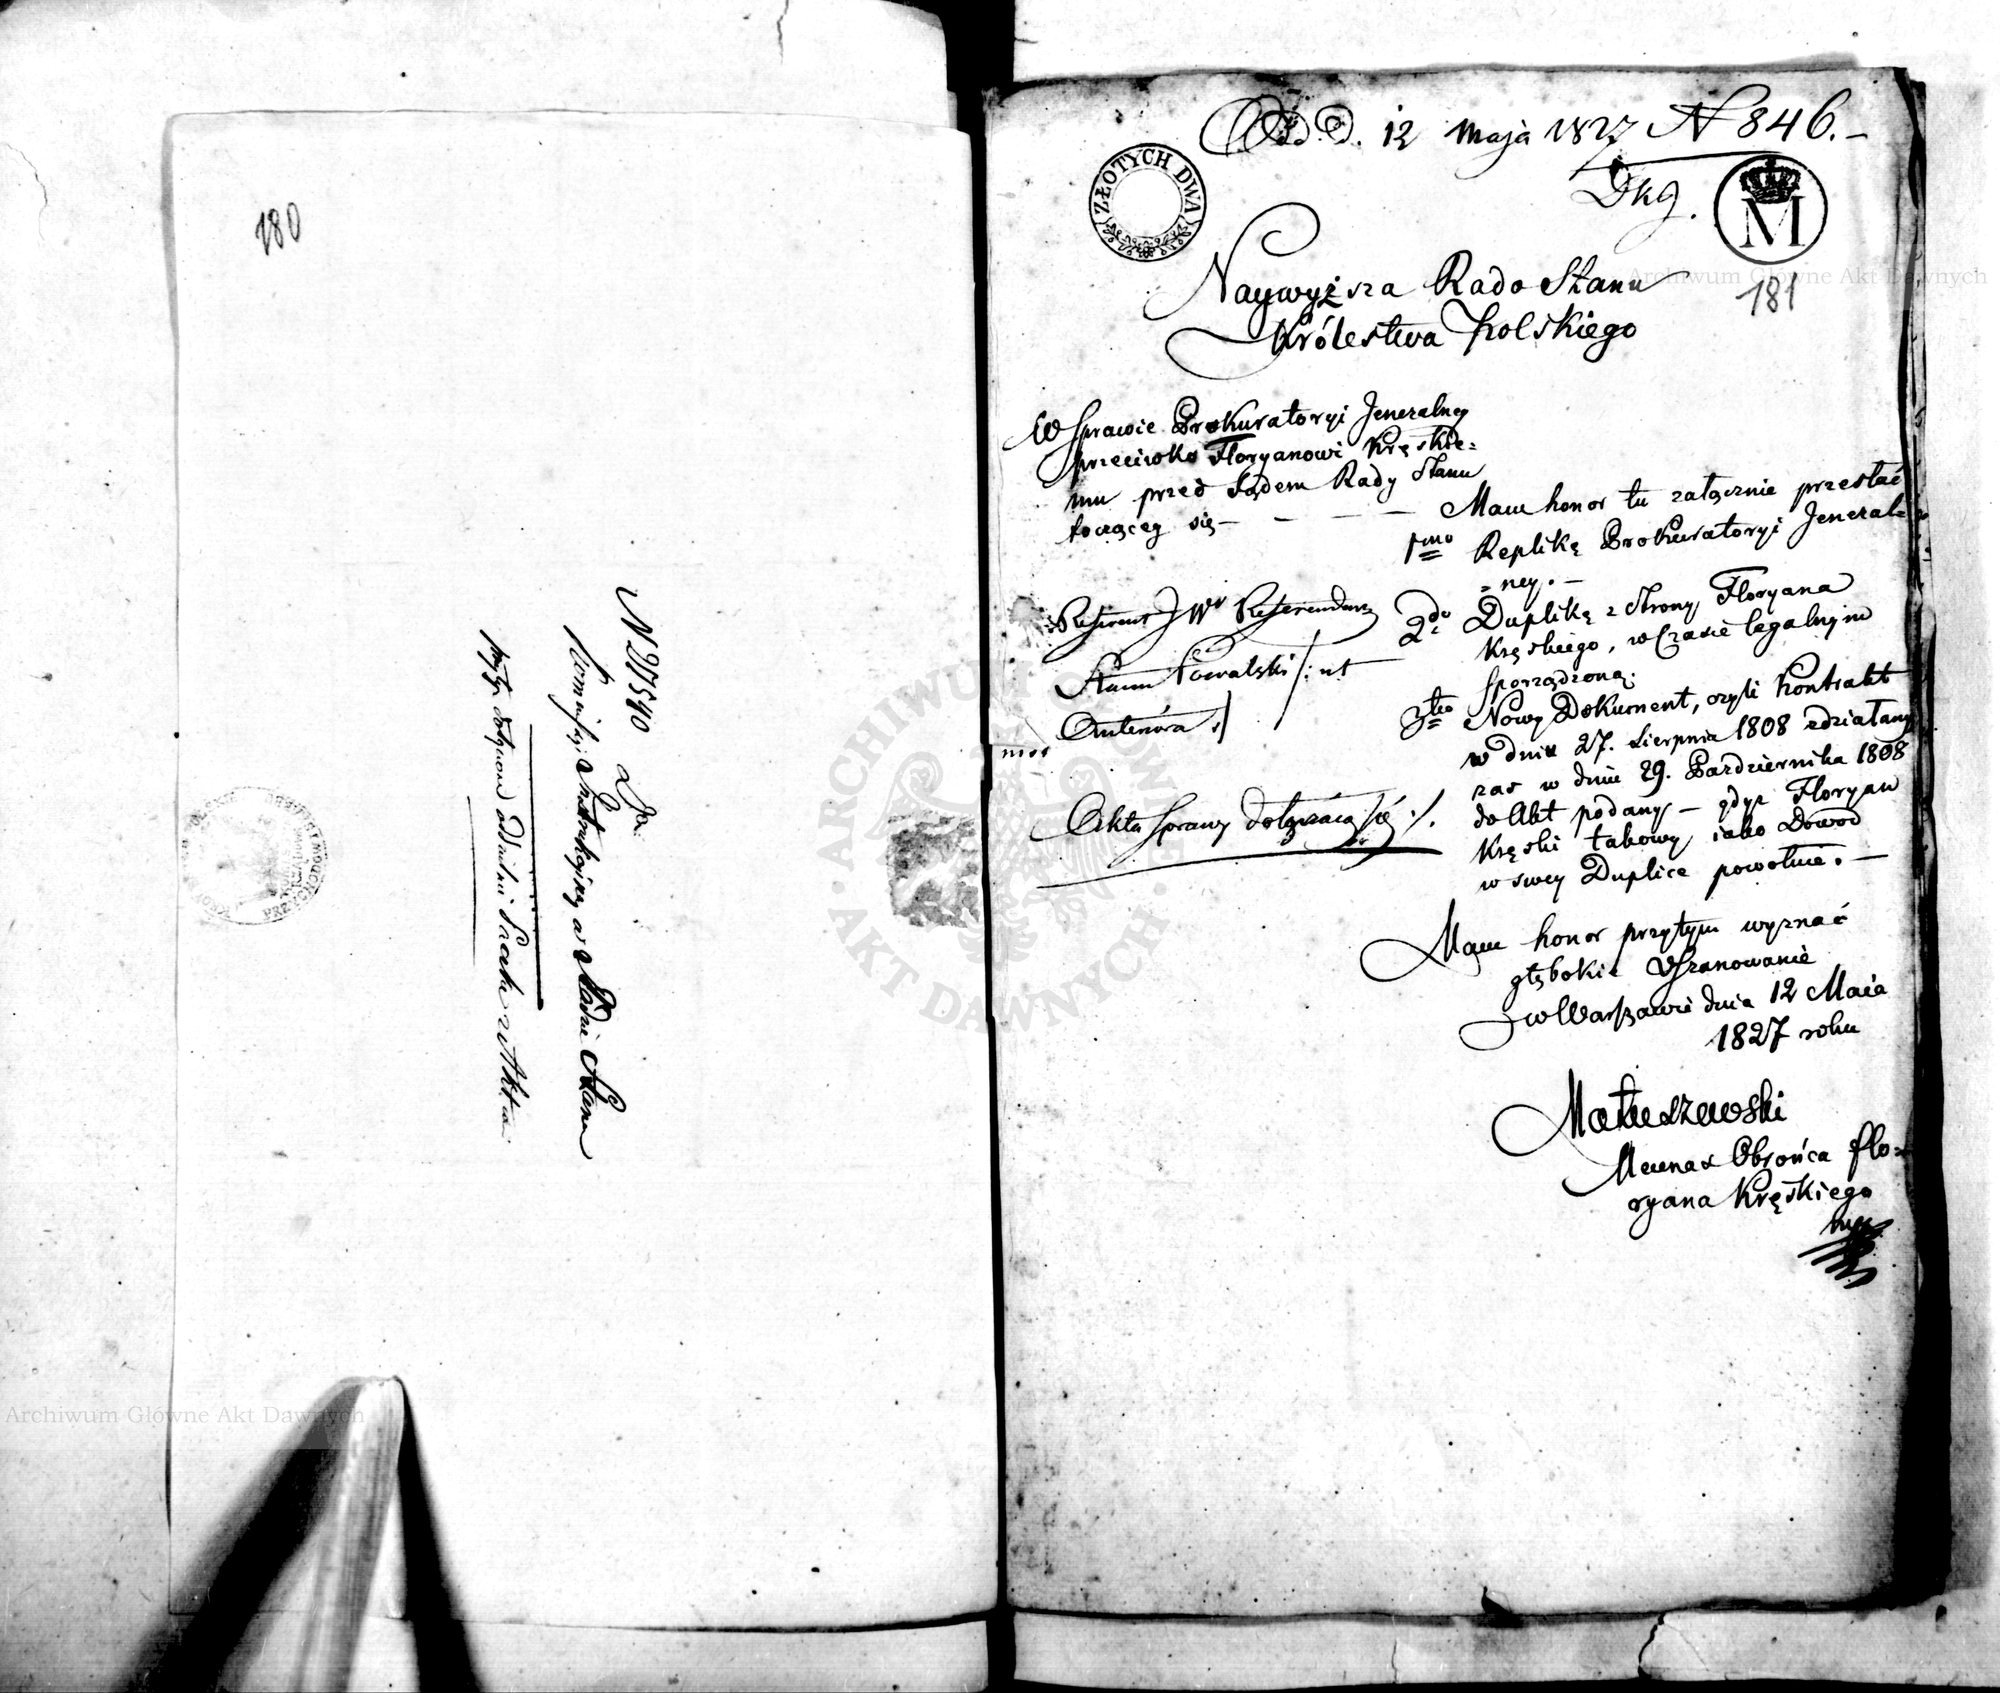 180
N 27540 Do
Kommissyi Instrukcyiney w Radzie Stanu
Odd. D. 12 maja 1827 N 846.–
Dkg.
ZŁOTYCH DWA
M
181
Naywyższa Rado Stanu
Królestwa Polskiego
W Sprawie Prokuratoryi Jeneralney
przeciwko Floryanowi Kręskie=
mu przed Sądem Rady Stanu
toczącey się – – – –
Referent JWr Referendarz
Stanu Kowalski /: ut
Antenora :/
Akta Sprawy dotyczące się :/.
Mam honor tu załącznie przesłać
1mo Replikę Prokuratoryi Jeneral=
=ney. –
2do Duplikę z Strony Floryana
Kręskiego, w Czasie legalnym
sporządzoną.
3tio Nowy Dokument, czyli Kontrakt
w dniu 27. Sierpnia 1808 zdziałany
zaś w dniu 29. Października 1808
do Akt podany – gdyż Floryan
Kręski takowy iako Dowod
w swey Duplice powołuie. –
Mam honor przytym wyznać
głębokie Uszanowanie
w Warszawie dnia 12 Maia
1827 roku
Matuszewski
Mecenas Obrońca Flo=
ryana Kręskiego
ARCHIWUM GŁÓWNE AKT DAWNYCH
Archiwum Główne Akt Dawnych
Archiwum Główne Akt Dawnych